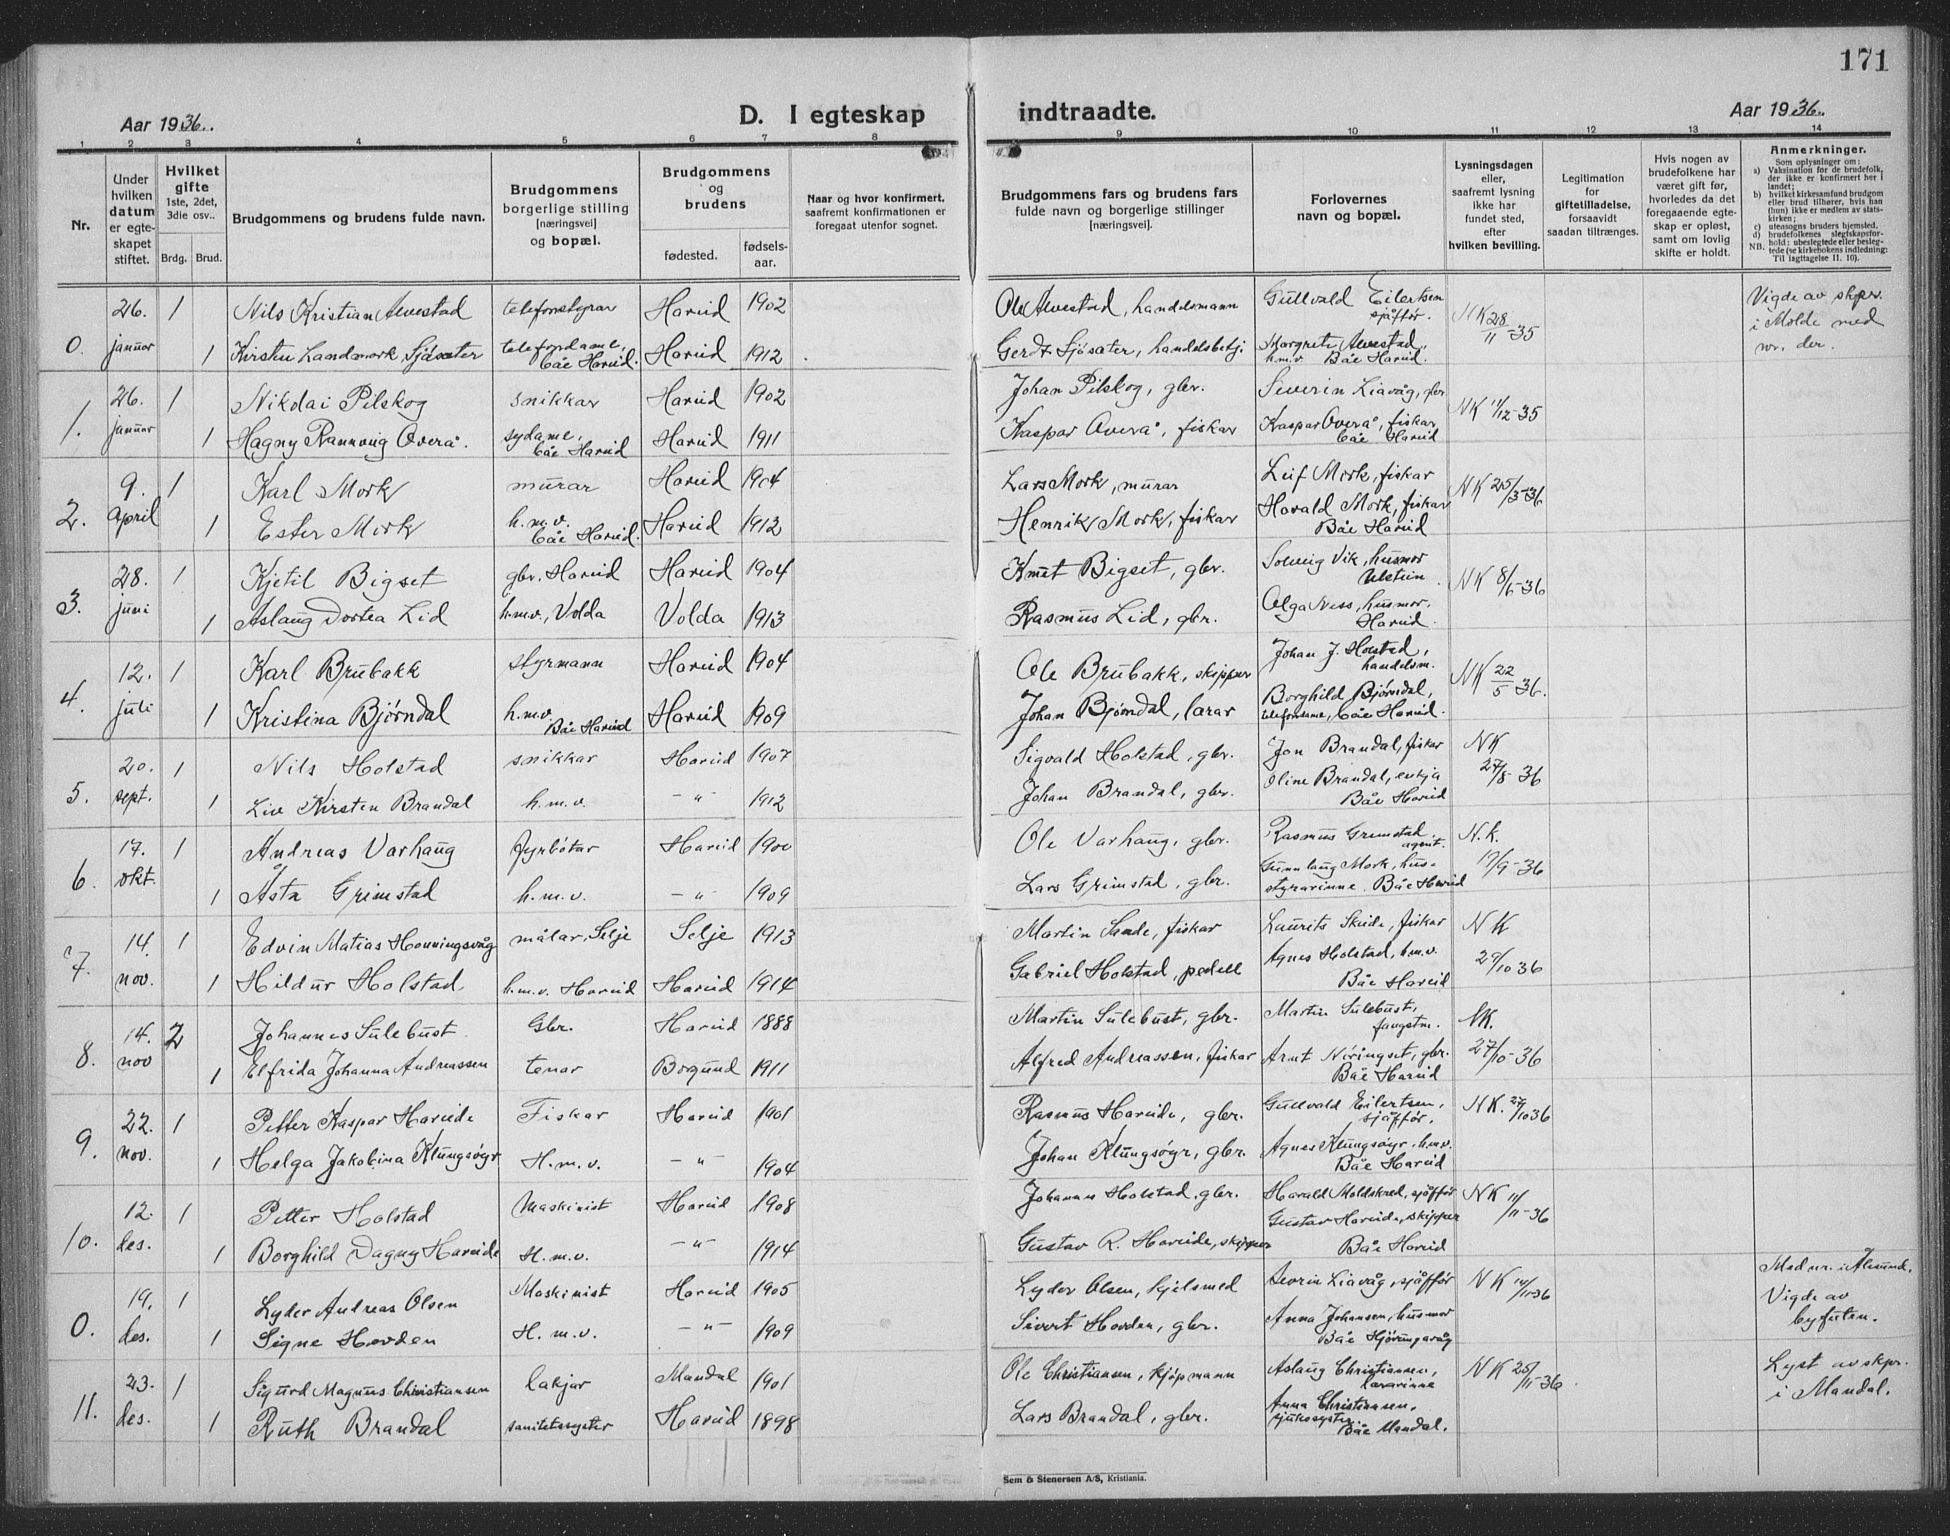 171
Aar 1936.
D. I egteskap indtraadte.
Aar 1936.
1 2 3 4 5 6 7 8 9 10 11 12 13 14
Nr.
Under hvilken datum er egteskapet stiftet.
Hvilket gifte 1ste, 2det, 3die osv..
Brdg. Brud.
Brudgommens og brudens fulde navn.
Brudgommens borgerlige stilling [næringsvei] og bopæl.
Brudgommens og brudens
fødested. fødselsaar.
Naar og hvor konfirmert, saafremt konfirmationen er foregaat utenfor sognet.
Brudgommens fars og brudens fars fulde navn og borgerlige stillinger [næringsvei].
Forlovernes navn og bopæl.
Lysningsdagen eller, saafremt lysning ikke har fundet sted, efter hvilken bevilling.
Legitimation for giftetilladelse, forsaavidt saadan tiltrænges.
Hvis nogen av brudefolkene har været gift før, hvorledes da det foregaaende egteskap er opløst, samt om lovlig skifte er holdt.
Anmerkninger.
Som oplysninger om:
a) Vaksination for de brudefolk, der ikke er konfirmert her i landet;
b) hvilket kirkesamfund brudgom eller brud tilhører, hvis han (hun) ikke er medlem av statskirken;
c) utensogns bruders hjemsted.
d) brudefolkenes slegtskapsforhold: ubeslegtede eller beslegtede (se kirkebokens indledning:
NB. Til iagttagelse II. 10).
0. 26. januar 1 Nils Kristian Alvestad telefonstyrar Hareid 1902 Ole Alvestad, handelsmann Gullvald Eilertsen sjåfør. NK 28/11-35 Vigde av skpr. i Molde med nr. der.
1 Kirsten Landmork Sjösæter telefondame, båe Hareid. Hareid 1912 Gerdt Sjösæter, handelsbetj. Margrete Alvestad, h.m.v. Båe Hareid.
1. 26. januar 1 Nikolai Pilskog snikkar Hareid 1902 Johan Pilskog, gbr. Severin Liavåg, NK 11/12-35
1 Hagny Rannveig Overå. sydame, båe Hareid Hareid 1911 Kaspar Overå, fiskar Kaspar Overå, fiskar båe Hareid
2. 9. april 1 Karl Mork murar Hareid 1904 Lars Mork, murar Leif Mork, fiskar NK 25/3-36
1 Ester Mork h.m.v. båe Hareid. Hareid 1912 Henrik Mork, fiskar Harald Mork, fiskar Båe Hareid
3. 28. juni 1 Kjetil Bigset gbr, Hareid Hareid 1904 Knut Bigset, gbr. Solveig Vik, husmor Ulstein NK 8/6-36
1 Aslaug Dortea Lid h.m.v., Volda Volda 1913 Rasmus Lid, gbr. Olga Ness, husmor. Hareid.
4. 12. juli 1 Karl Brubakk styrmann Hareid 1904 Ole Brubakk, skipper Johan J. Holstad, handelsm. NK 22/5 36.
1 Kristina Bjørndal h.m.v. Båe Hareid Hareid 1909 Johan Bjørndal, lærar Borghild Bjørndal, telefondame, båe Hareid.
5. 20. sept. 1 Nils Holstad snikkar Hareid 1907 Sigvald Holstad, gbr. Jon Brandal, fiskar NK 27/8-36
1 Liv Kirsten Brandal h.m.v. - " - 1912 Johan Brandal, gbr. Oline Brandal, enkja Båe Hareid
6. 17. okt. 1 Andreas Varhaug fyrbötar Hareid 1900 Ole Varhaug, gbr. Rasmus Grimstad agent. N.k. 17/9-36
1 Åsta Grimstad h.m.v. - " 1909 Lars Grimstad, gbr. Gunnlaug Mork, hus-styrarinne. Båe Hareid
7. 14. nov. 1 Edvin Matias Honningsvåg målar, Selje Selje 1913 Martin Sande, fiskar Laurits Skeide, fiskar NK 29/10 36
1 Hildur Holstad h.m.v. Hareid Hareid 1914 Gabriel Holstad, pedell Agnes Holstad, h.m.v. Båe Hareid
8. 14. nov 2 Johannes Sulebust Gbr. Hareid 1888 Martin Sulebust, gbr. Martin Sulebust, fangstm. NK. 27/10-36
1 Elfrida Johanna Andreassen tenar Borgund 1911 Alfred Andreassen, fiskar Arnt Nöringset, gbr. Båe Hareid
9. 22. nov. 1 Petter Kaspar Hareide Fiskar Hareid 1901 Rasmus Hareide, gbr. Gullvald Eilertsen, sjåfför. NK. 27/10 36
1 Helga Jakobina Klungsöyr H.m.v. - " - 1904 Johan Klungsöyr, gbr. Agnes Klungsöyr, h.m.v. Båe Hareid
10. 12. des. 1 Petter Holstad Maskinist Hareid 1908 Johannes Holstad, gbr. Harald Moldskred, sjåfför NK 11/11-36
1 Borghild Dagny Hareide H.m.v. - " - 1914 Gustav R. Hareide, skipper Gustav Hareide, skipper Båe Hareid
0. 19. des. 1 Lyder Andreas Olsen Maskinist Hareid 1905 Lyder Olsen, kjelsmed Liavåg, sjåfför NK 14/11-36 Med nr. i Ålesund. Vigde av byfuten.
1 Signe Hovden H.m.v. - " - 1909 Sivert Hovden, gbr. Anna Johansen, husmor Båe Hjörungavåg
11. 23. des. 1 Sigurd Magnus Christiansen lakjar Mandal 1901 Ole Christiansen, kjöpmann Aslaug Christiansen, lærarinne NK 25/11-36 Lyst av skpr. i Mandal.
1 Ruth Brandal sanitetssyster Hareid 1898 Lars Brandal, gbr. Anna Christiansen, sjukesyster. Båe Mandal.
Sem & Stenersen A/S, Kristiania.